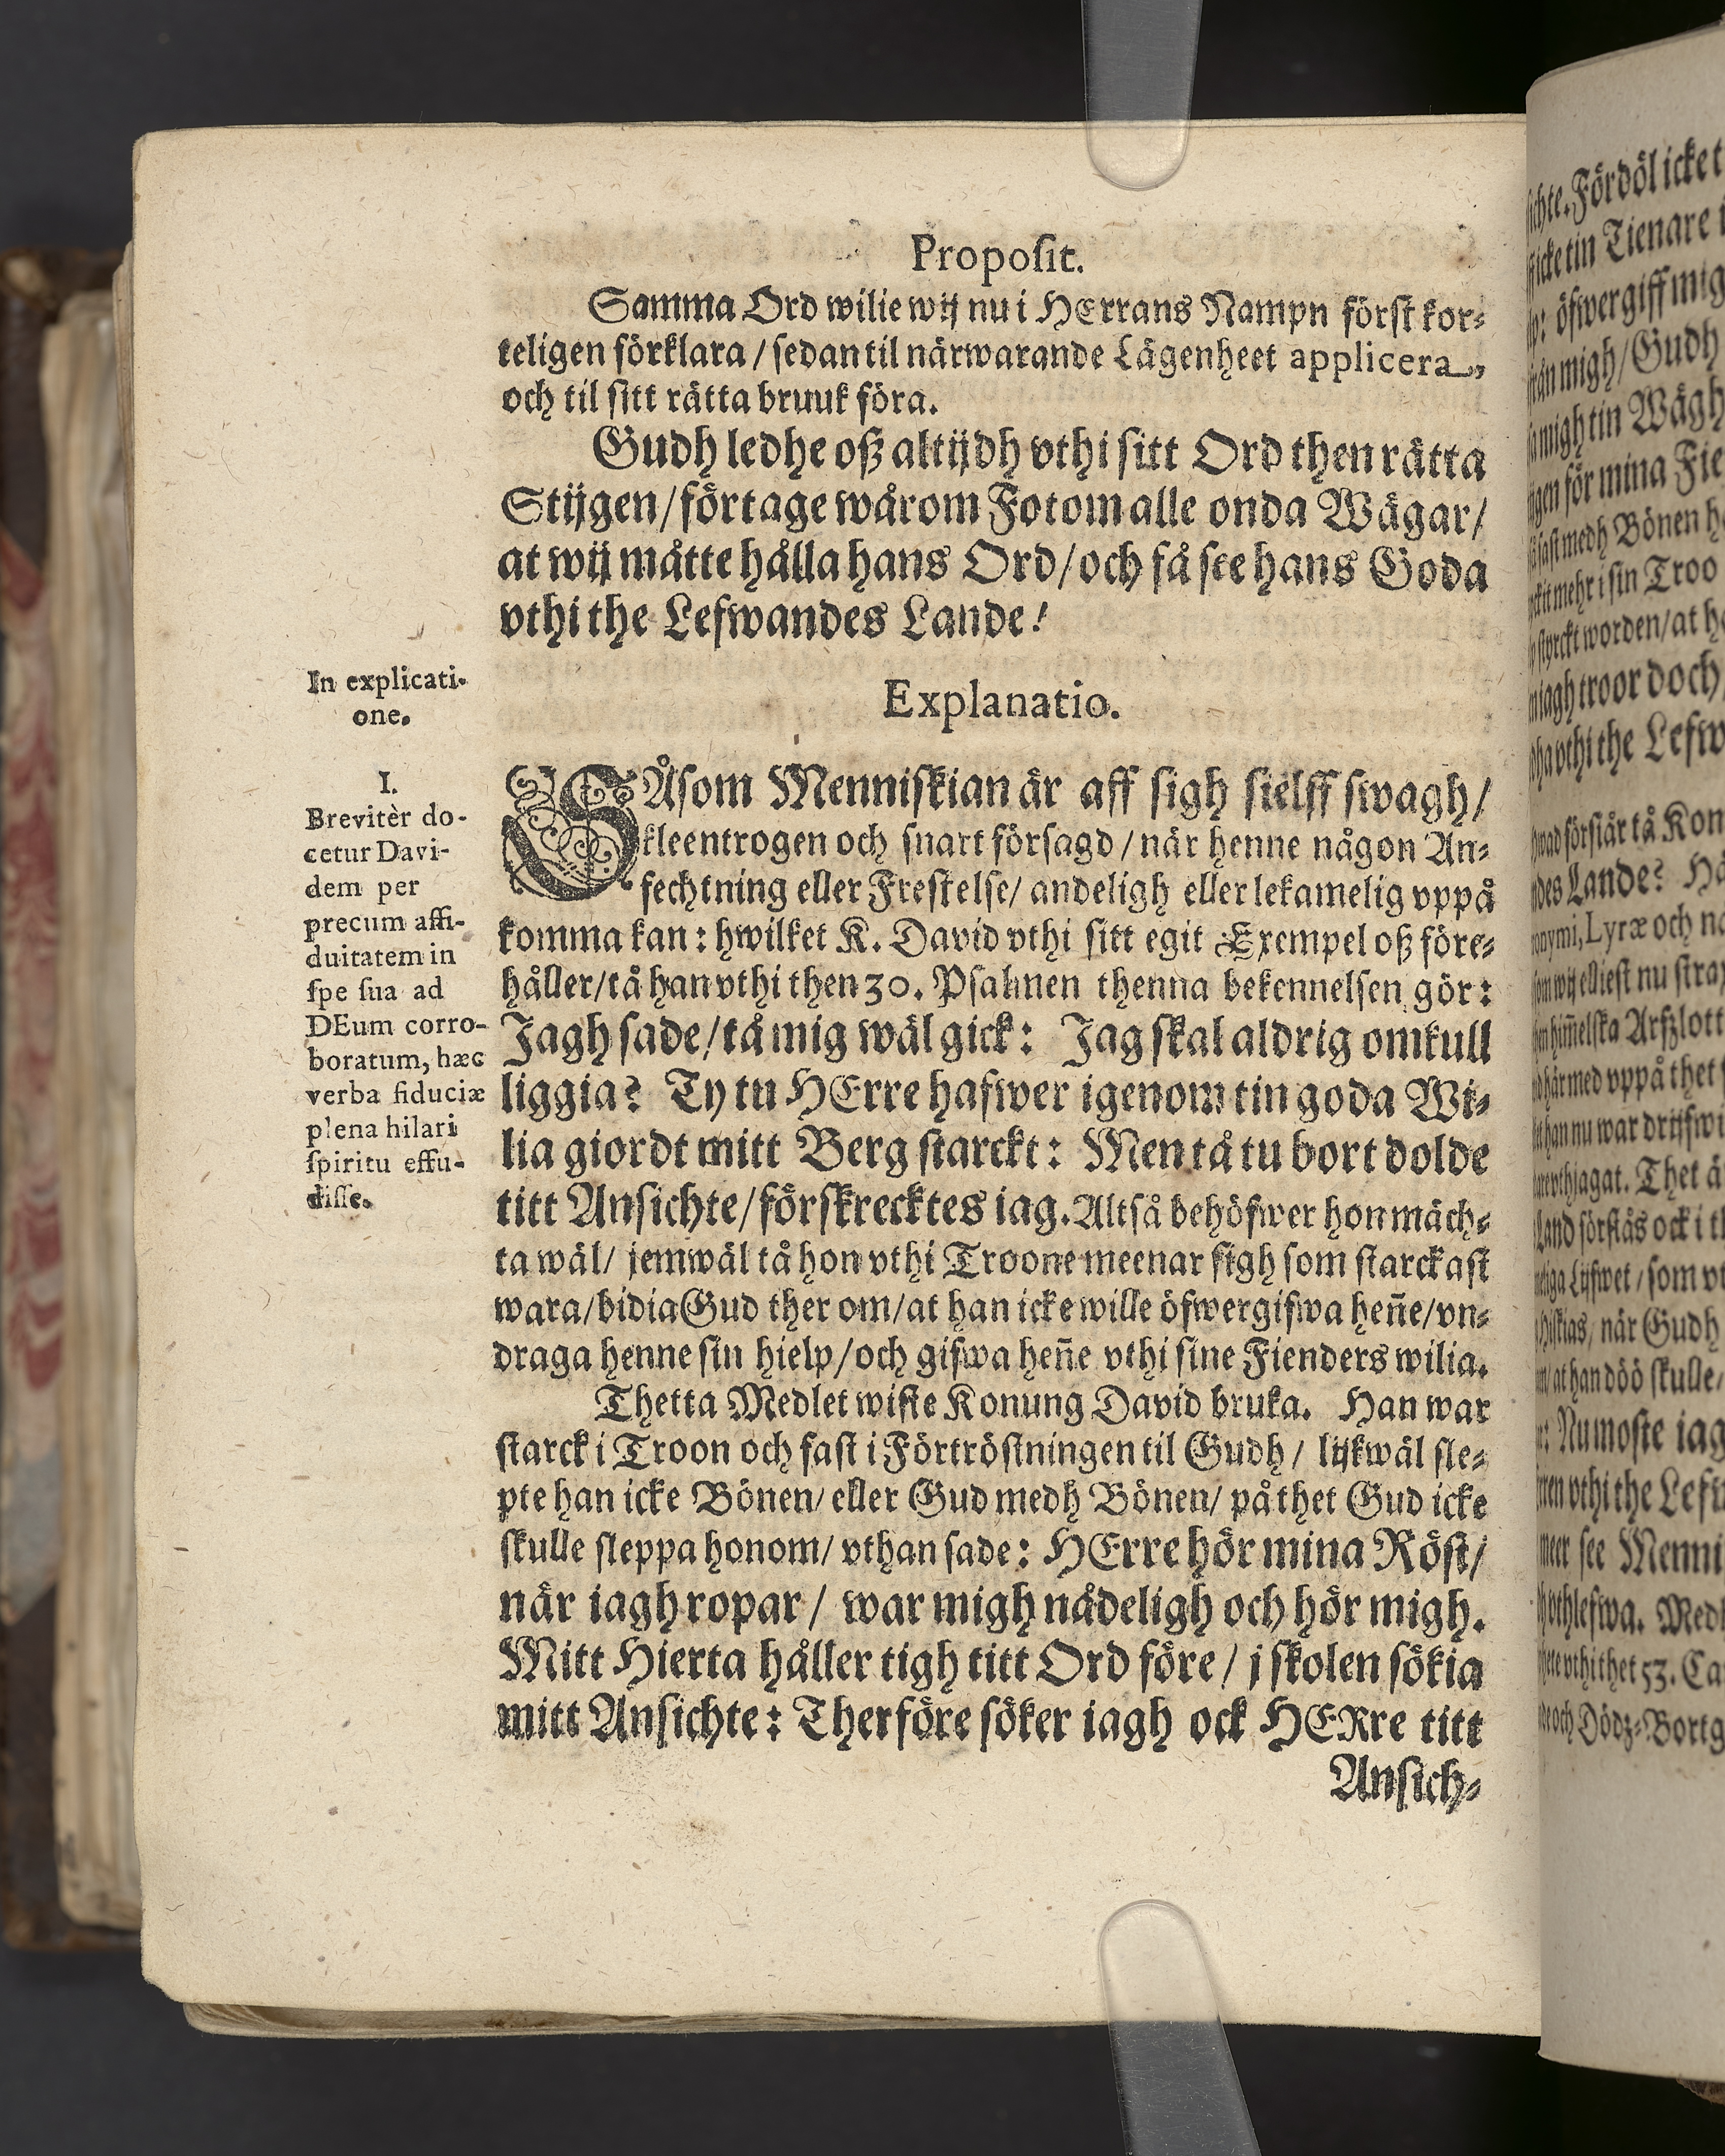 Proposit.
Samma Ord wilie wij nu i HErrans Nampn först kor-
teligen förklara / sedan til närwarande Lägenheet applicera,
och til sitt rätta bruuk föra.
Gudh ledhe oß altijdh vthi sitt Ord then rätta
Stijgen / förtage wårom Fotom alle onda Wägar /
at wij måtte hålla hans Ord / och få see hans Goda
vthi the Lefwandes Lande!
In explicati-
one.
Explanatio.
I.
Brevitèr do-
cetur Davi-
dem per
precum assi-
duitatem in
spe sua ad
DEum corro-
boratum, hæc
verba fiduciæ
plena hilari
spiritu effu-
disse.
SÅsom Menniskian är aff sigh sielff swagh /
kleentrogen och snart försagd / när henne någon An-
fechtning eller Frestelse / andeligh eller lekamelig vppå
komma kan: hwilket K. David vthi sitt egit Exempel oß före-
håller / tå han vthi then 30. Psalmen thenna bekennelsen gör:
Jagh sade / tå mig wäl gick: Jag skal aldrig omkull
liggia? Ty tu HErre hafwer igenom tin goda Wi-
lia giordt mitt Berg starckt: Men tå tu bort dolde
titt Ansichte / förskrecktes iag. Altså behöfwer hon mäch-
ta wäl / jemwäl tå hon vthi Troone meenar sigh som starckast
wara / bidia Gud ther om / at han icke wille öfwergifwa heñe / vn-
draga henne sin hielp / och gifwa heñe vthi sine Fienders wilia.
Thetta Medlet wiste Konung David bruka. Han war
starck i Troon och fast i Förtröstningen til Gudh / lijkwäl sle-
pte han icke Bönen / eller Gud medh Bönen / på thet Gud icke
skulle sleppa honom / vthan sade: HErre hör mina Röst /
när iagh ropar / war migh nådeligh och hör migh.
Mitt Hierta håller tigh titt Ord före / j skolen sökia
mitt Ansichte: Therföre söker iagh ock HERre titt
Ansich-